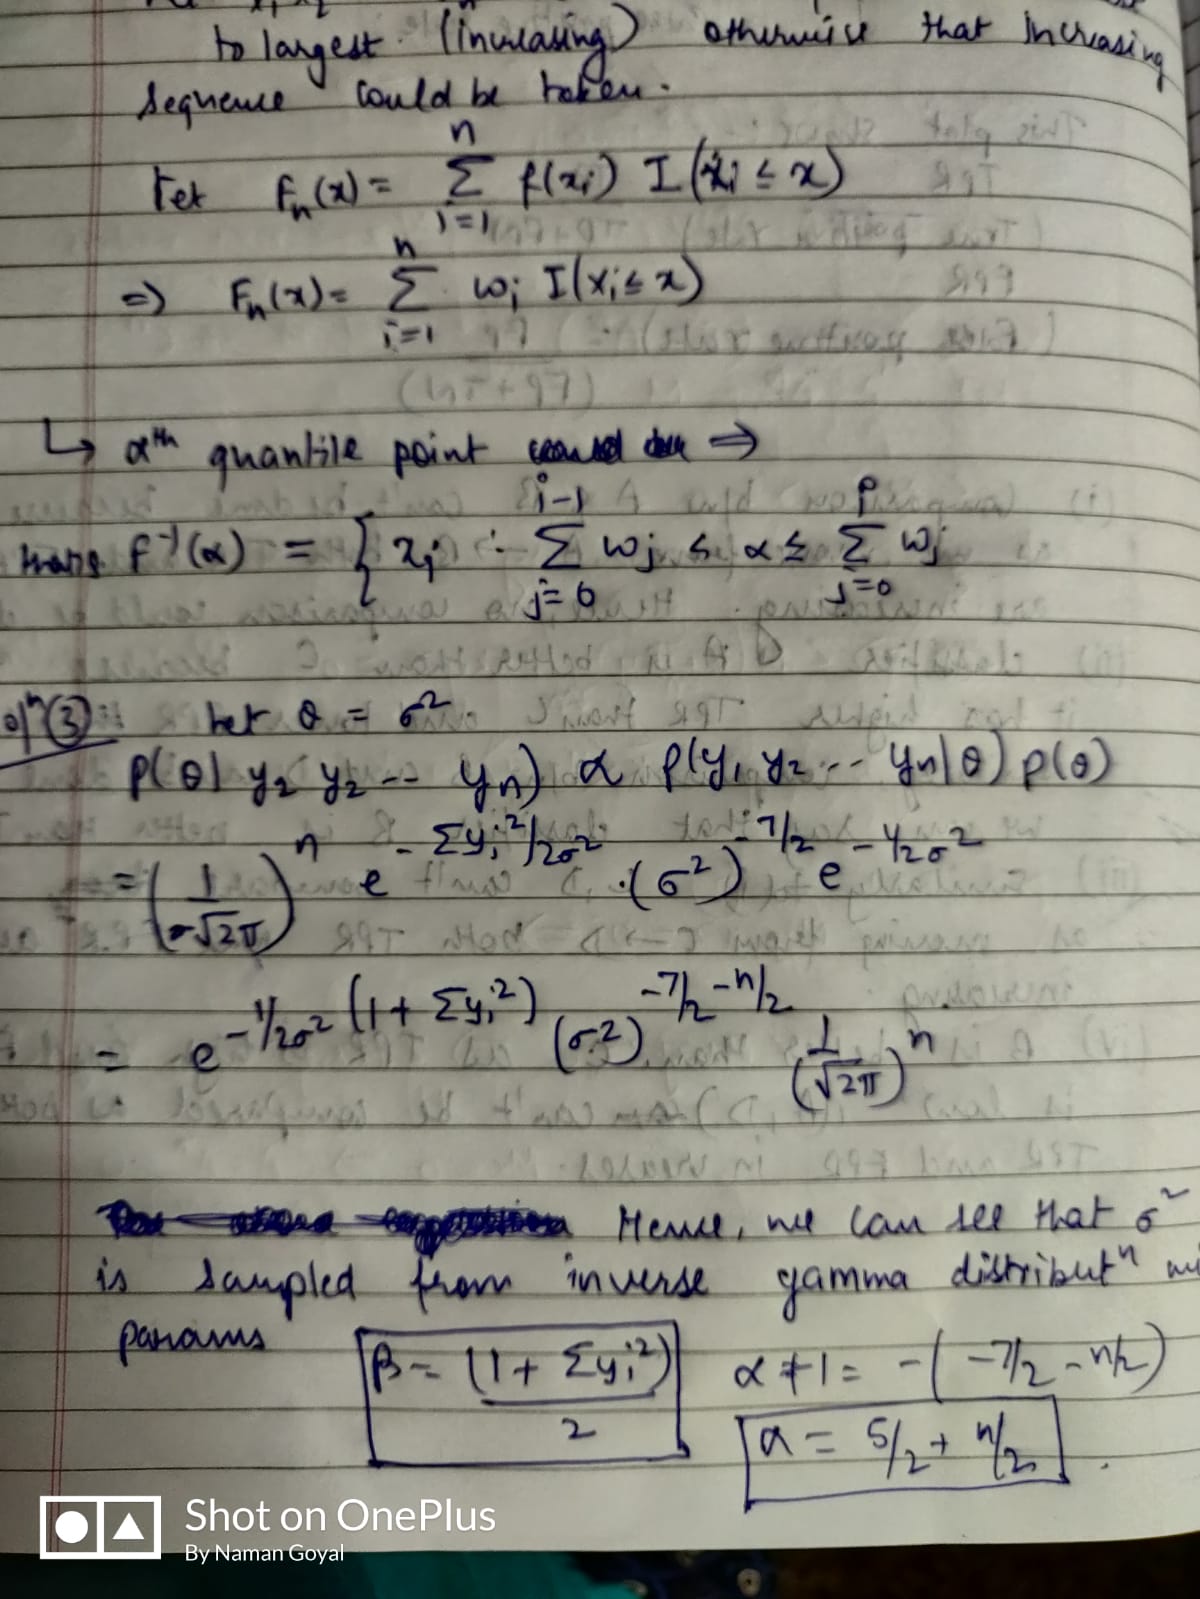 to largest (increasing) otherwise that increasing
sequence could be taken.
Let Fn(x) = n Σ i=1 f(xi) I(xi ≤ x)
=> Fn(x) = n Σ i=1 wi I(xi ≤ x)
↳ αth quantile point =>
F⁻¹(α) = { xi : i-1 Σ j=0 wj ≤ α ≤ i Σ j=0 wj
olⁿ (3): Let θ = σ²
P(θ| y2 y2 -- yn) α P(y1 y2 -- yn|θ) p(θ)
= (1/σ√2π)ⁿ e^-Σyi²/2σ² · (σ²)^-7/2 e^-1/2σ²
= e^-1/2σ² (1 + Σyi²) (σ²)^-7/2-n/2 (1/√2π)ⁿ
Hence, we can see that σ²
is sampled from inverse gamma distributⁿ wi
params β = (1 + Σyi²)/2 α+1 = -(-7/2 - n/2)
α = 5/2 + n/2 .
Shot on OnePlus
By Naman Goyal